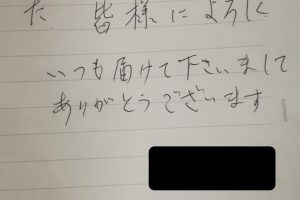 た 皆様によろしく
いつも届けて下さいまして
ありがとうございます